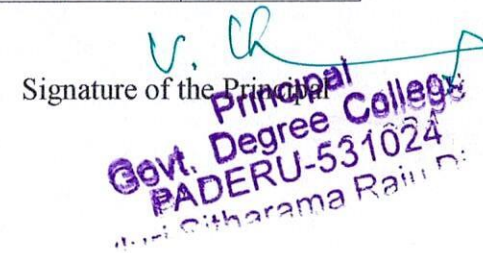 V. Ch
Signature of the Principal
Principal
Govt. Degree College
PADERU-531024
Sitharama Raju